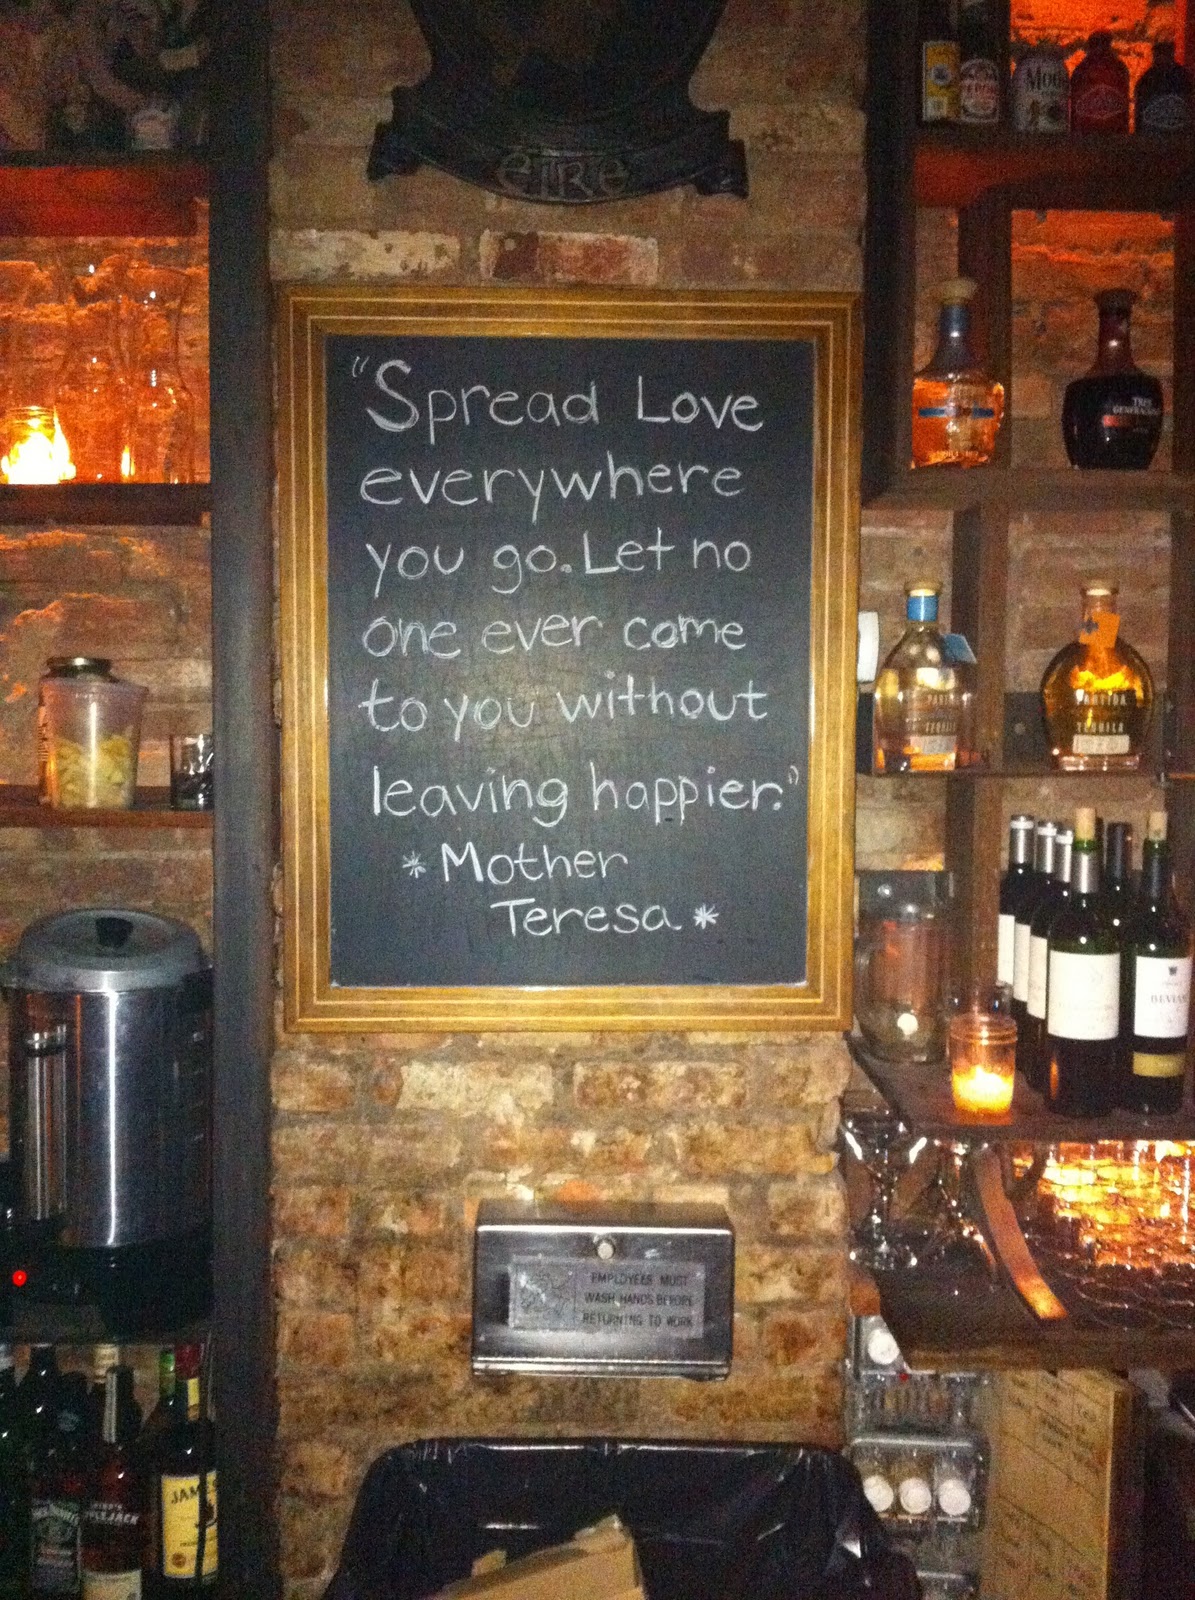 EIRE
"Spread Love
everywhere
you go. Let no
one ever come
to you without
leaving happier."
* Mother
Teresa *
TRES
GENERACIONES
PARTIDA
TEQUILA
PARTIDA
TEQUILA
EMPLOYEES MUST
WASH HANDS BEFORE
RETURNING TO WORK